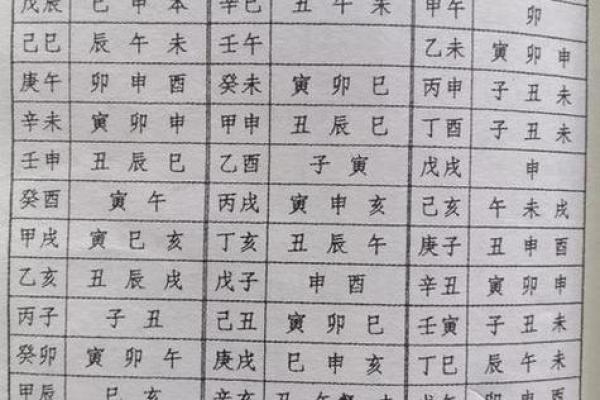 戊辰 巳 申 辛巳 丑 午 未 甲午 卯
己巳 辰 午 未 壬午 乙未 寅 卯 申
庚午 卯 申 酉 癸未 寅 卯 巳 丙申 子 丑 未
辛未 寅 卯 申 甲申 丑 辰 巳 丁酉 子 丑 未
壬申 丑 辰 巳 乙酉 子 寅 戊戌 申
癸酉 寅 午 丙戌 寅 申 亥 己亥 午 未 戌
甲戌 寅 巳 亥 丁亥 丑 辰 午 庚子 丑 申 酉
乙亥 丑 辰 戌 戊子 申 酉 辛丑 寅 卯 申
丙子 子 丑 己丑 寅 卯 巳 壬寅 子 丑 未
癸卯 寅 卯 午 庚戌 巳 申 亥 丁巳 辰 午 未
甲辰 巳 亥 辛亥 丑 午 戊午 卯 申 酉